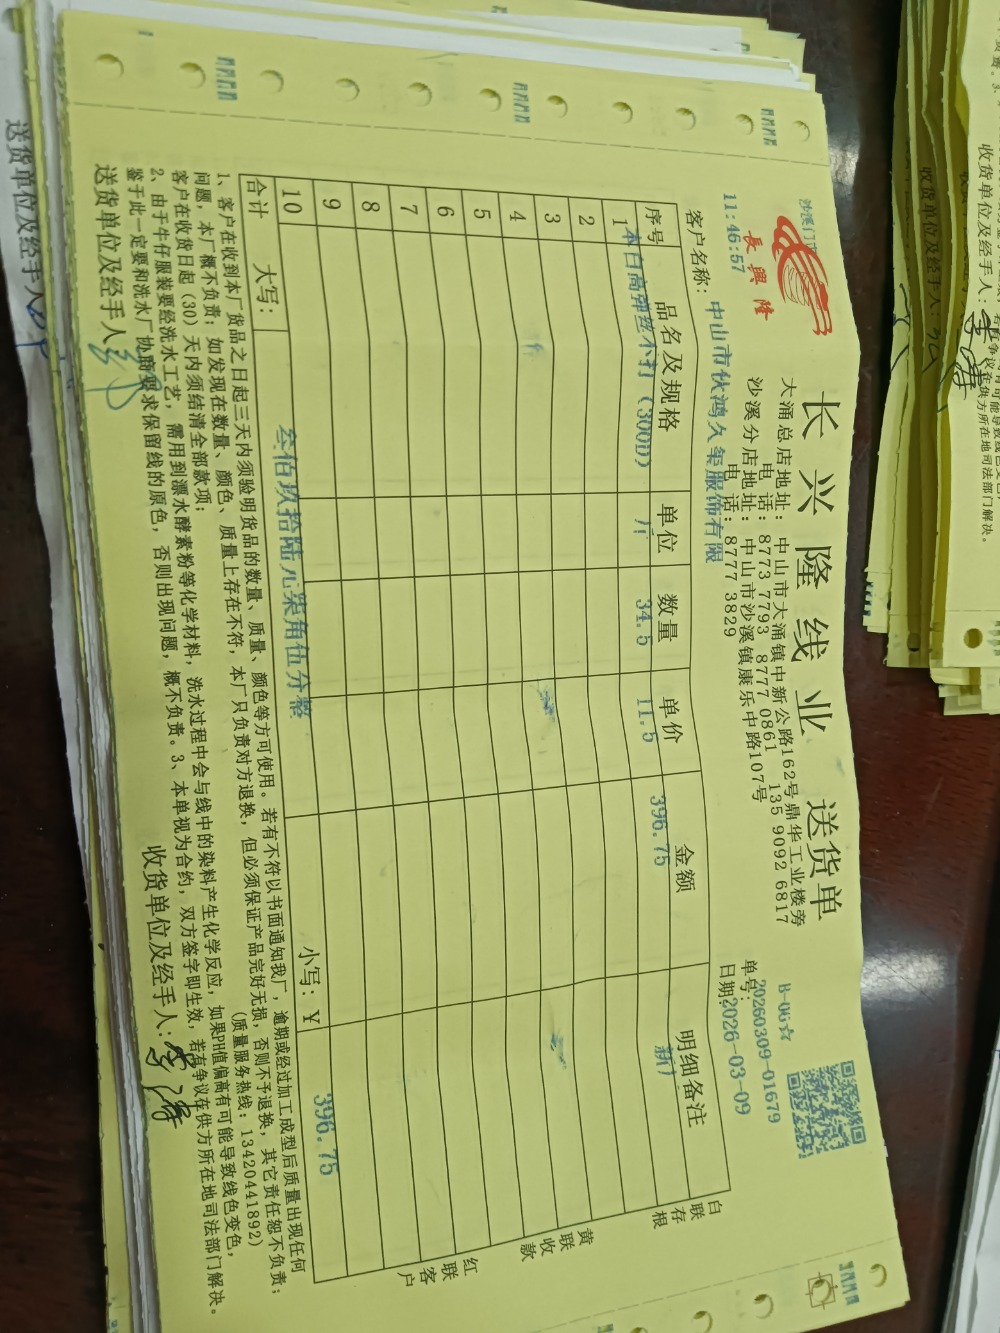 长兴隆线业 送货单
長興隆
沙溪门
11:46:57
大涌总店地址：中山市大涌镇中新公路162号鼎华工业楼旁
电 话：8773 7793 8777 0861 135 9092 6817
沙溪分店地址：中山市沙溪镇康乐中路107号
电 话：8777 3829
B-06☆
单号：20260309-01679
日期：2026-03-09
客户名称：中山市伙鸿久集服饰有限
序号 品名及规格 单位 数量 单价 金额 明细备注
1 本白高弹丝不打（300D） 斤 34.5 11.5 396.75 新厂
2
3
4
5
6
7
8
9
10
合计 大写： 叁佰玖拾陆元柒角伍分整 小写：￥ 396.75
白联存根
黄联收款
红联客户
1、客户在收到本厂货品之日起三天内须验明货品的数量、质量、颜色等方可使用。若有不符以书面通知我厂，逾期或经过加工成型后质量出现任何
问题，本厂概不负责；如发现在数量、颜色、质量上存在不符，本厂只负责对方退换，但必须保证产品完好无损，否则不予退换，其它责任恕不负责；
客户在收货日起（30）天内须结清全部款项； （质量服务热线：13420441892）
2、由于牛仔服装要经洗水工艺，需用到漂水酵素粉等化学材料，洗水过程中会与线中的染料产生化学反应，如果PH值偏高有可能导致线色变色，
鉴于此一定要和洗水厂协商要求保留线的原色，否则出现问题，概不负责。3、本单视为合约，双方签字即生效，若有争议在供方所在地司法部门解决。
送货单位及经手人： 收货单位及经手人：
送货单位及经手人
收货单位及经手人：
收货单位及经手人：
争议在供方所在地司法部门解决。